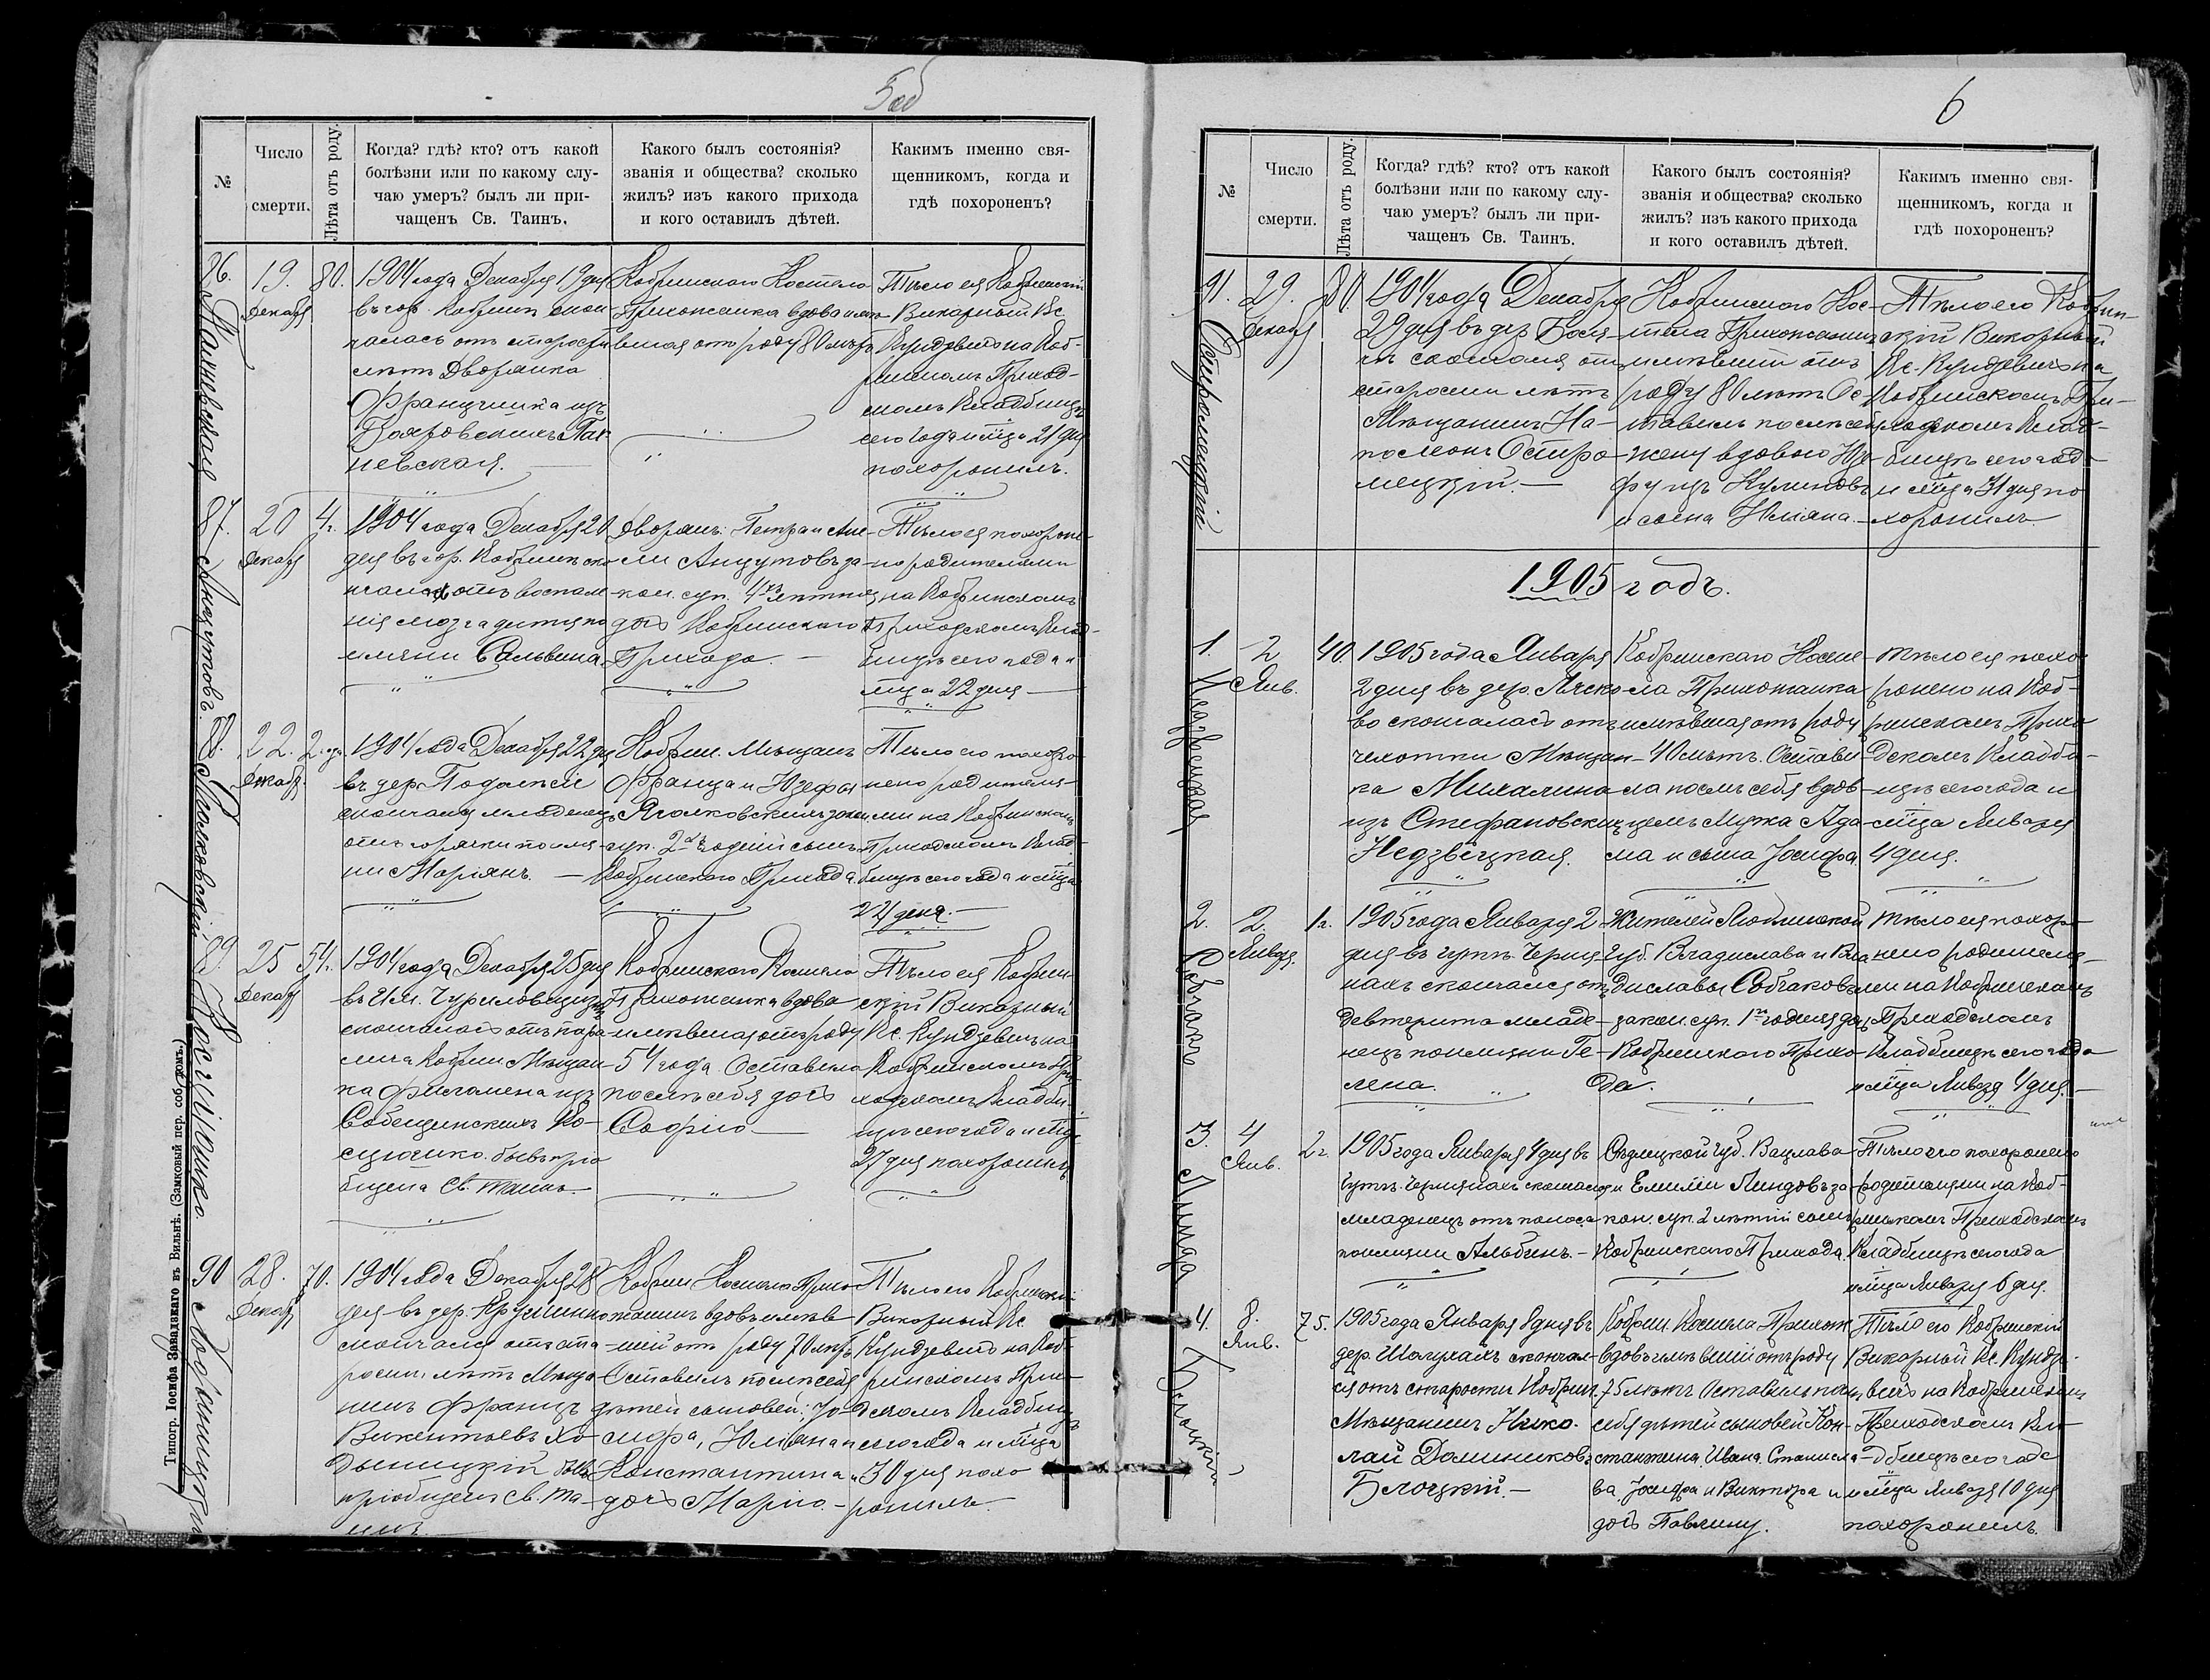 5об
№
Число
смерти.
Лѣта отъ роду.
Когда? гдѣ? кто? отъ какой
болѣзни или по какому слу-
чаю умеръ? былъ ли при-
чащенъ Св. Таинъ.
Какого былъ состоянія?
званія и общества? сколько
жилъ? изъ какого прихода
и кого оставилъ дѣтей.
Какимъ именно свя-
щенникомъ, когда и
гдѣ похороненъ?
86.
19.
Декабря
80.
1904 года Декабря 19 дня
въ гор. Кобринѣ скон
чалась отъ старости
лѣтъ Дворянка
Францишка изъ
невская.
Кобринскаго Костела
Прихожанка вдова имѣ
вшая отъ роду 80 лѣтъ
Тѣло ея Кобринскій
Викарный Кс.
Кундзевичъ на Коб-
ринскомъ Приход-
скомъ Кладбищѣ
сего года и мца 21 дня
похоронилъ.
87.
Анцутовъ.
20
Декабря
4г.
1904 года Декабря 20
дня въ гор. Кобринѣ ско
нчалась отъ воспале
нія мозга дитя по
имени Сальвина
Дворянъ: Петра и Ане-
ли Анцутовъ за-
кон. суп. 4хъ лѣтняя
дочь Кобринскаго
Прихода.
Тѣло ея похороне-
но родителями
на Кобринскомъ
Приходскомъ Клад-
бищѣ сего года и
мца 22 дня
88.
22.
Декабр.
2 г.
1904 года Декабря 22 дня
въ дер. Подолѣсіи
скончался младенецъ
отъ горячки по име-
ни Маріянъ.
Кобрин. Мѣщанъ
Франца и Юзефы
суп. 2хъ годній сынъ
Кобринскаго Прихода.
Тѣло его похоро
нено родителя-
ми на Кобринскомъ
Приходскомъ Клад-
бищѣ сего года и мца
24 дня.
89.
Косцюшко.
25
Декабр
54г.
1904 года Декабря 25 дня
въ Им. Чуриловщизнѣ
скончалась отъ пара-
лича Кобрин Мѣщан
ка Филомена изъ
Собещинскихъ Ко-
сцюшко. бывъ прі
общена Св. Таинъ.
Кобринскаго Костела
Прихожанка вдова
имѣвшая отъ роду
54 года. Оставила
послѣ себя дочь
Софію
Тѣло ея Кобрин-
скій Викарный
Кс. Кундзевичъ на
Кобринскомъ При
ходскомъ Кладби-
щѣ сего года и мца
27 дня похоронилъ
90
Ходыницкій
28.
Декабр
70.
1904 года Декабря 28
скончался отъ ста-
рости лѣтъ Мѣща
нинъ Францъ
Викентьевъ Хо-
дыницкій бывъ
пріобщенъ Св. Та-
инъ
Кобрин Костела Прихо
жанинъ вдовъ имѣв
шій отъ роду 70 лѣтъ
Оставилъ послѣ себя
дѣтей сыновей: Іо-
сифа, Юліана и
Константина и
дочь Марію.
Тѣло его Кобринскій
Викарный Кс
Кундзевичъ на Коб-
ринскомъ Прихо-
дскомъ Кладбищѣ
сего года и мца
30 дня похо
ронилъ.
Типогр. Іосифа Завадзкаго въ Вильнѣ. (Замковый пер. соб. домъ.)
6
№
Число
смерти.
Лѣта отъ роду.
Когда? гдѣ? кто? отъ какой
болѣзни или по какому слу-
чаю умеръ? былъ ли при-
чащенъ Св. Таинъ.
Какого былъ состоянія?
званія и общества? сколько
жилъ? изъ какого прихода
и кого оставилъ дѣтей.
Какимъ именно свя-
щенникомъ, когда и
гдѣ похороненъ?
91.
Остромецкій
29.
Декабря
80.
1904 года Декабря
29 дня въ дер.
скончался отъ
старости лѣтъ
Мѣщанинъ На-
полеонъ Остро-
мецкій.
Кобринскаго Кос-
тела Прихожанинъ
имѣвшій отъ
роду 80 лѣтъ Ос-
тавилъ послѣ себя
жену вдовою Юзе-
фу изъ Куликовъ
и сына Юліяна.
Тѣло его Кобрин-
скій Викарный
Кс. Кундзевичъ на
Кобринскомъ При-
ходскомъ Клад-
бищѣ сего года
и мца 31 дня по
хоронилъ
1905 годъ.
1.
Недзвецкая
2
Янв.
40.
1905 года Января
2 дня въ дер. Ляско-
во скончалась отъ
чехотки Мѣщан-
ка Михалина
изъ Стефановскихъ
Недзвецкая.
Кобринскаго Косте-
ла Прихожанка
имѣвшая отъ роду
40 лѣтъ. Остави-
ла послѣ себя вдов-
цемъ Мужа Ада-
ма и сына Іосифа
Тѣло ея похо
ронено на Коб-
ринскомъ Прихо
дскомъ Кладби-
щѣ сего года и
мца Января
4 дня.
2.
Собчакъ
2.
Январ.
1г.
1905 года Января 2
дня въ гутѣ Черня
нахъ скончался отъ
девтерита младе-
нецъ по имени Ге-
лена.
Жителей Люблинской
Губ. Владислава и Вла
диславы Собчаковъ
закон. суп. 1но годняя дочь
Кобринскаго Прихо-
да.
Тѣло ея похоро-
нено родителя-
ми на Кобринскомъ
Приходскомъ
Кладбищѣ сего года
и мца Января 4 дня.
3.
Линда
4
Янв.
2г.
1905 года Января 4 дня въ
Гутѣ Чернянахъ скончался
младенецъ отъ поноса
по имени Альбинъ.
Сѣдлецкой губ. Вацлава
и Емиліи Линдовъ за-
кон. суп. 2 лѣтній сынъ
Кобринскаго Прихода.
Тѣло его похоронено
родителями на Коб-
ринскомъ Приходскомъ
Кладбищѣ сего года
и мца Января 6 дня.
4.
Бѣлоцкій
8.
Янв.
75.
1905 года Января 8 дня въ
дер. Шипухахъ скончал-
ся отъ старости Кобрин.
Мѣщанинъ Нико-
лай Доминиковъ
Бѣлоцкій.
Кобрин. Костела Прихож
вдовъ имѣвшій отъ роду
75 лѣтъ Оставилъ послѣ
себя дѣтей сыновей Кон-
стантина, Ивана, Станисла-
ва, Іосифа и Виктора и
дочь Павлину.
Тѣло его Кобринскій
Викарный Кс. Кундзе-
вичъ на Кобринскомъ
Приходскомъ Кла-
дбищѣ сего года
и мца Января 10 дня
похоронилъ.